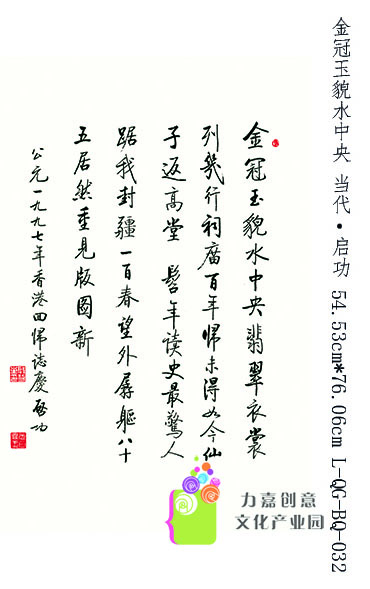 金冠玉貌水中央 当代·启功 54.53cm*76.06cm L-QG-BQ-032
金冠玉貌水中央翡翠衣裳
列幾行祠廟百年歸未得如今仙
子返高堂 髫年讀史最驚人
踞我封疆一百春望外孱軀八十
五居然重見版圖新
公元一九九七年香港回歸誌慶啟功
力嘉创意
文化产业园